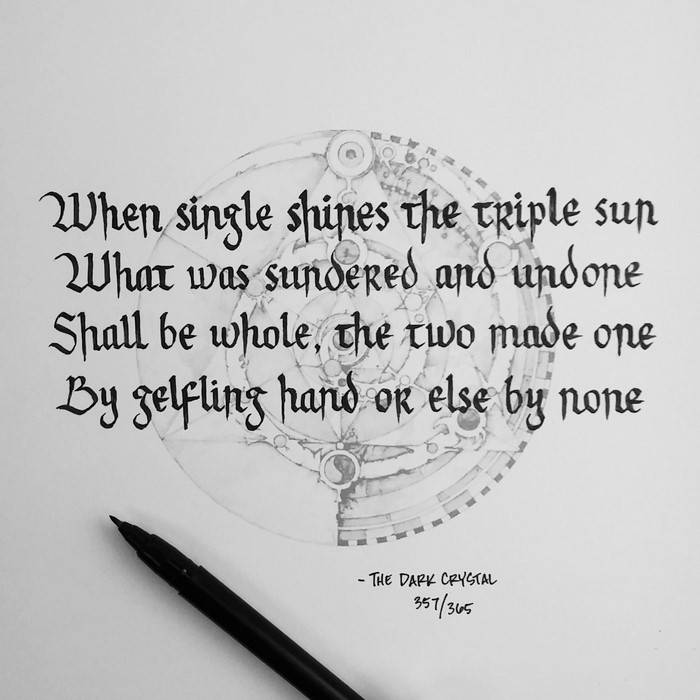 When single shines the triple sun
What was sundered and undone
Shall be whole, the two made one
By gelfling hand or else by none
- THE DARK CRYSTAL
357/365